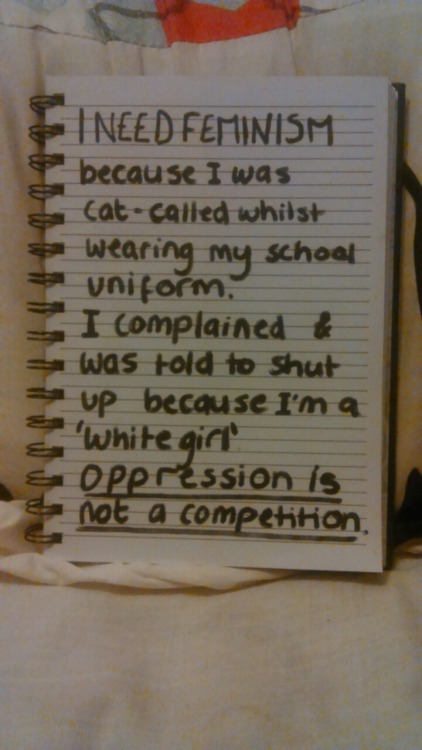 I NEED FEMINISM
because I was
cat-called whilst
wearing my school
uniform.
I complained &
was told to shut
up because I'm a
'white girl'
oppression is
not a competition.